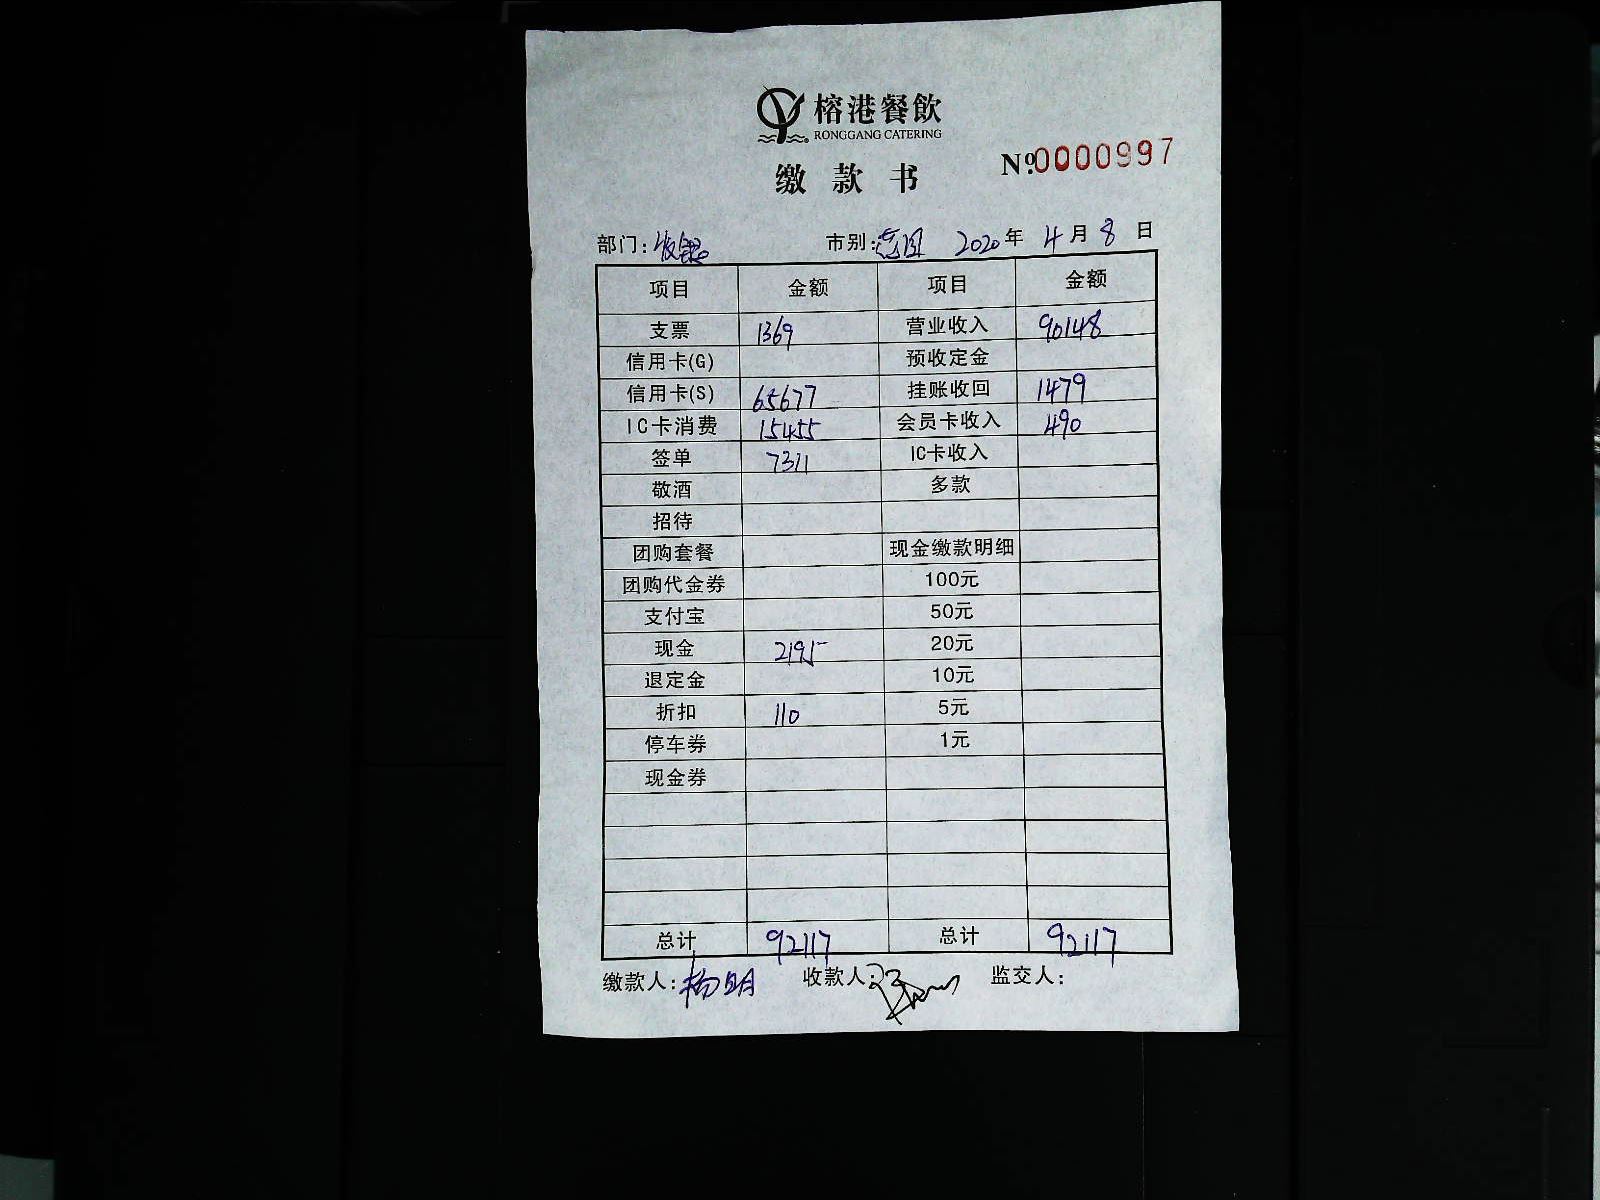 榕港餐飲
RONGGANG CATERING
缴款书 №0000997
部门: 收银 市别: 2020年 4月 8日
项目 金额 项目 金额
支票 1369 营业收入 90148
信用卡(G) 预收定金
信用卡(S) 65677 挂账收回 1479
IC卡消费 15455 会员卡收入 490
签单 7311 IC卡收入
敬酒 多款
招待
团购套餐 现金缴款明细
团购代金券 100元
支付宝 50元
现金 2195 20元
退定金 10元
折扣 110 5元
停车券 1元
现金券
总计 92117 总计 92117
缴款人: 杨明 收款人: 监交人: